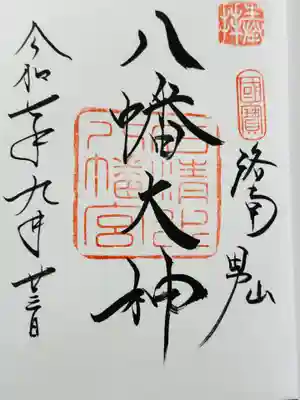 奉拝
國寶
洛南 男山
八幡大神
石清水
八幡宮
令和七年九月廿三日